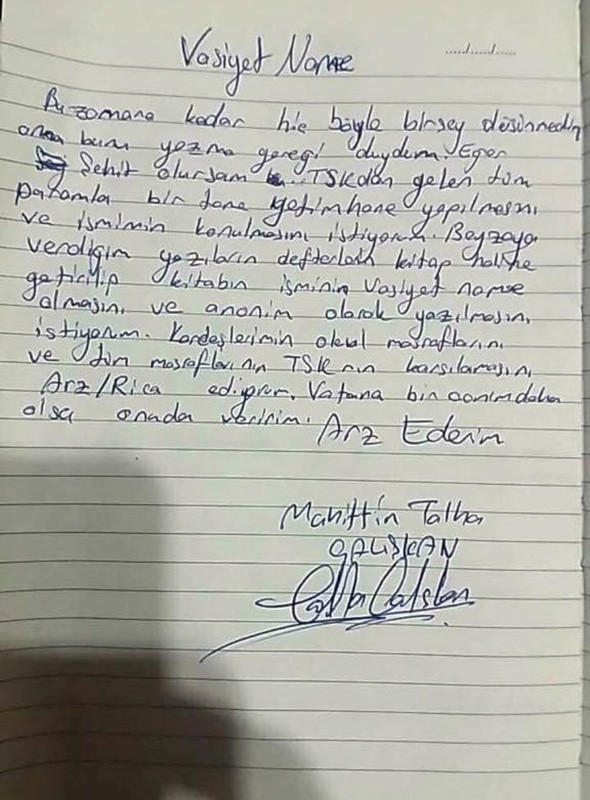 Vasiyet Name
...../...../......
Bu zamana kadar hiç böyle birşey düşünmedim
ama bunu yazma gereği duydum. Eğer
Şehit olursam TSKdan gelen tüm
paramla bir tane yetimhane yapılmasını
ve ismimin konulmasını istiyorum. Beyzaya
verdiğim yazıların defterlerin kitap haline
getirilip kitabın isminin Vasiyet name
olmasını ve anonim olarak yazılmasını
istiyorum. Kardeşlerimin okul masraflarını
ve tüm masraflarının TSKnın karşılamasını
Arz/Rica ediyorum. Vatana bin canım daha
olsa onuda veririm.
Arz Ederim
Muhittin Talha
ÇALIŞKAN